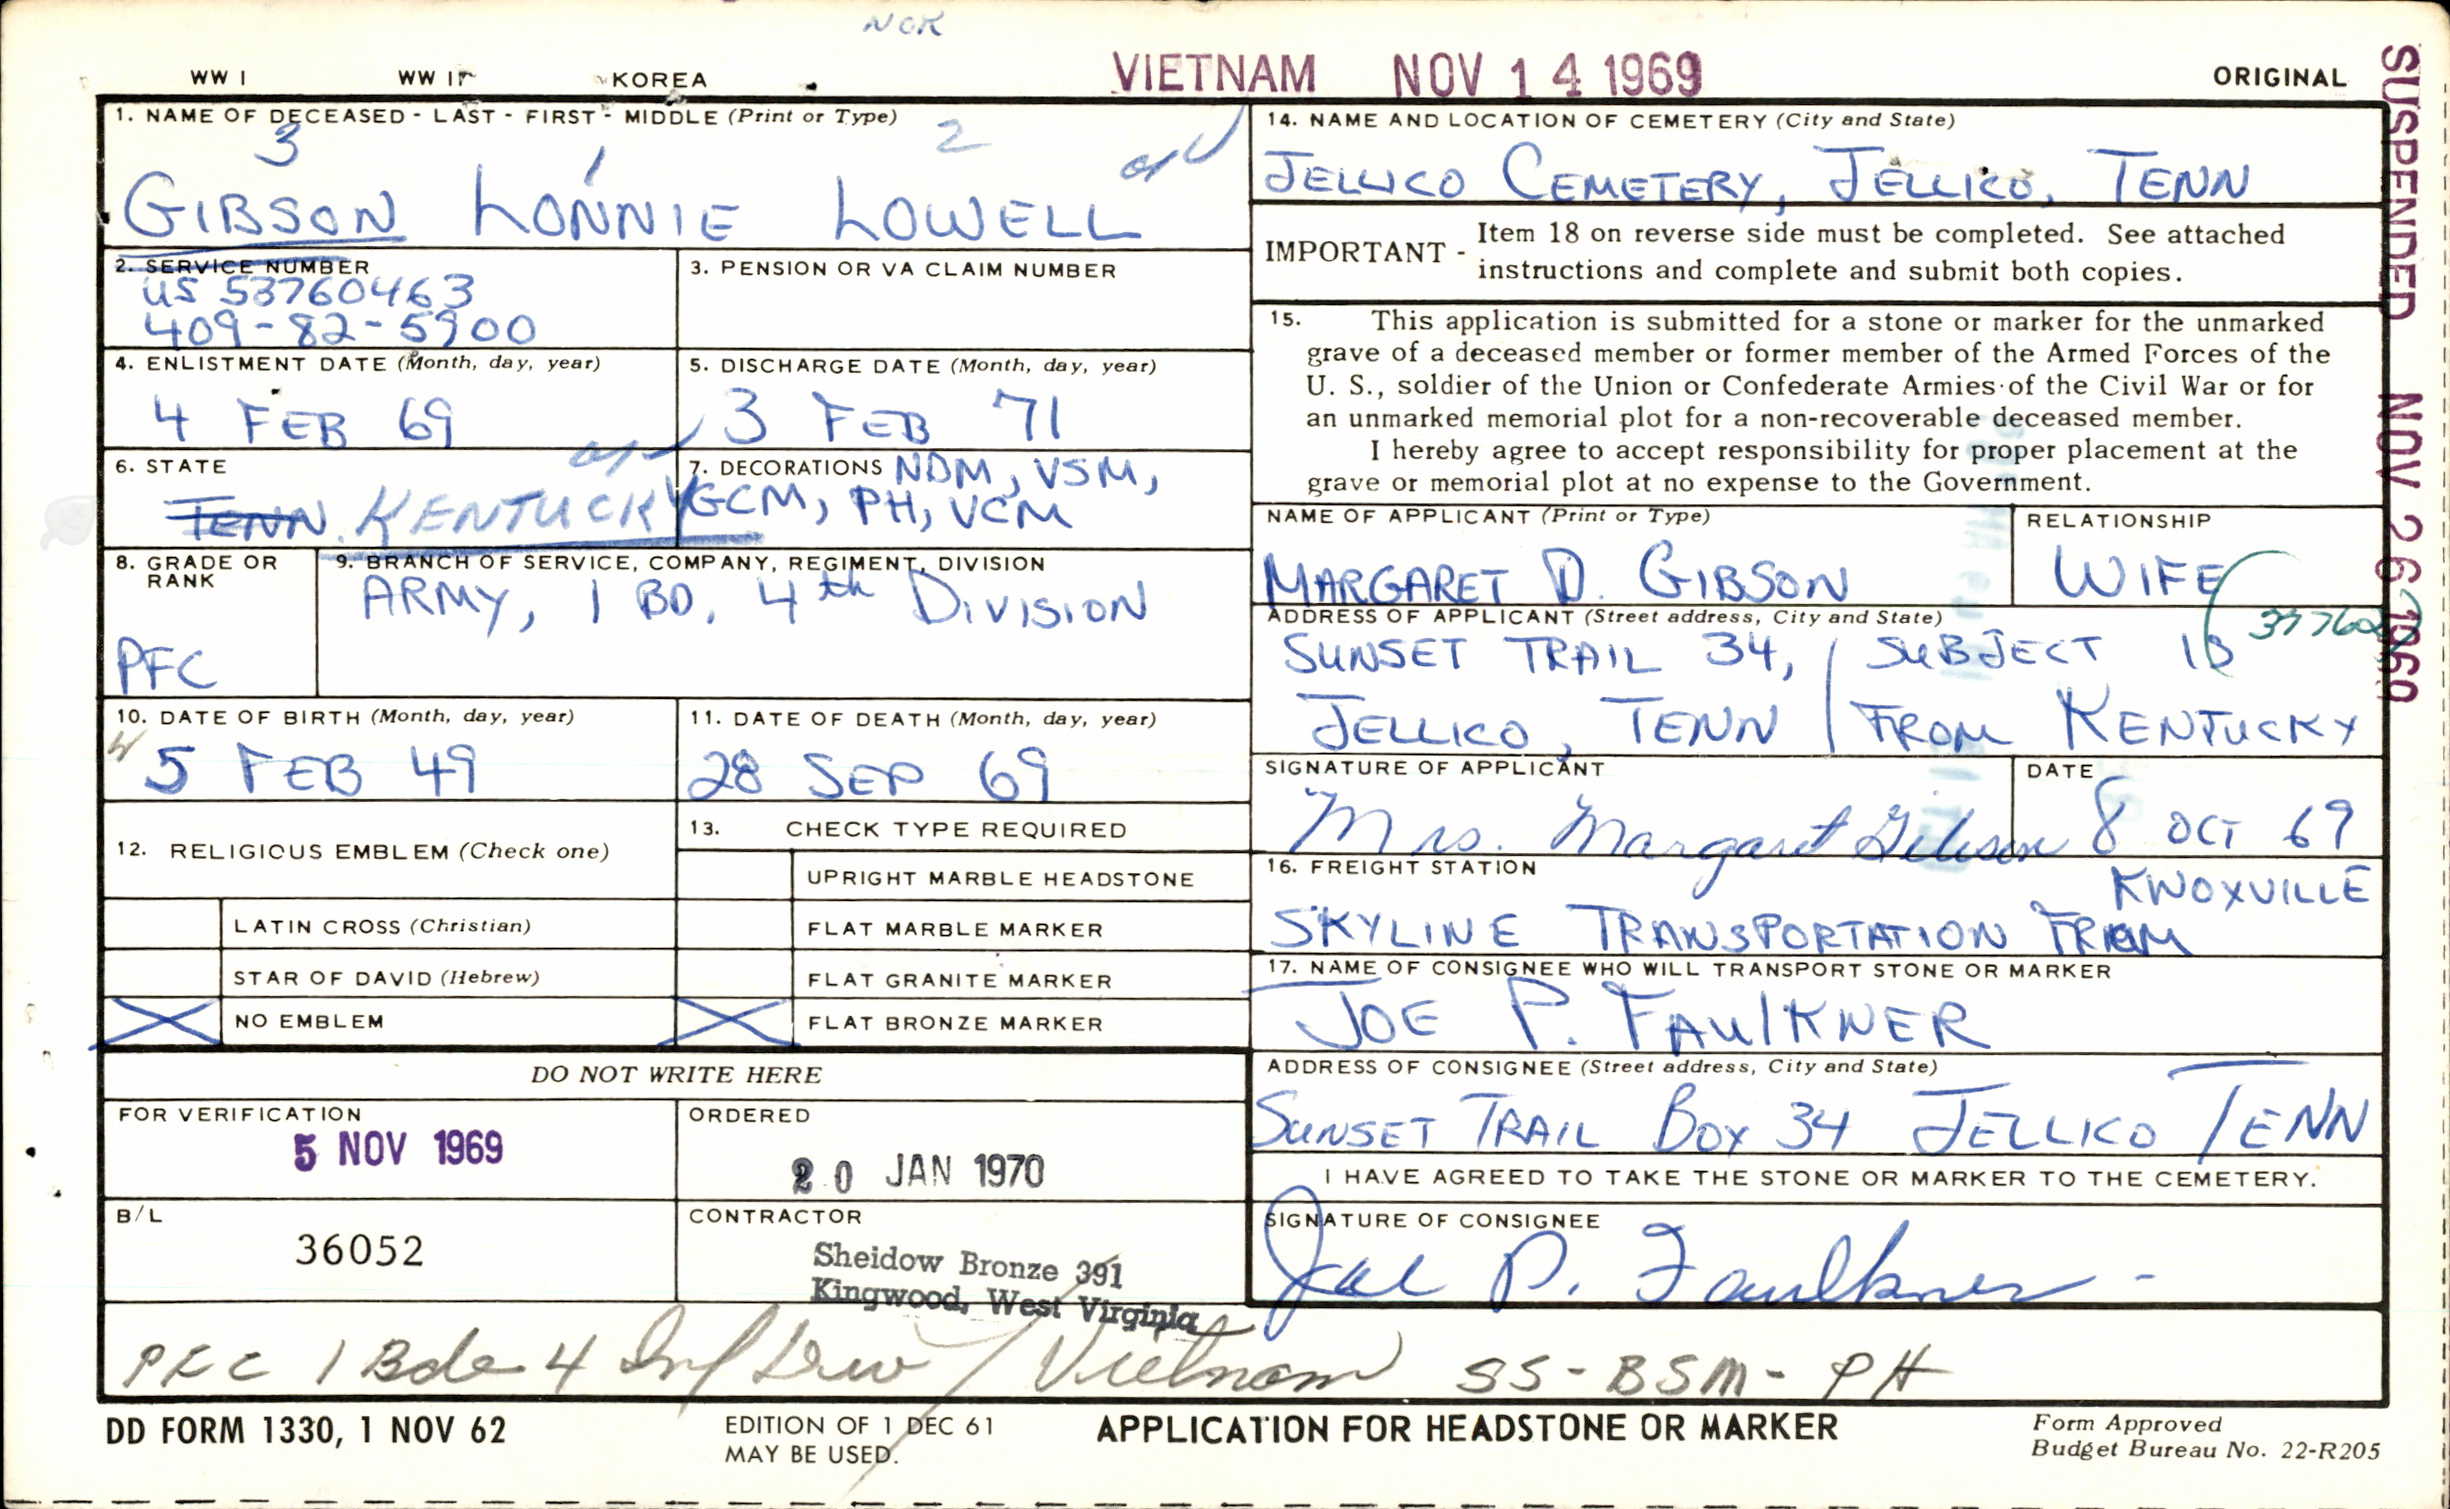 NOK
WW I WW II KOREA VIETNAM NOV 14 1969 ORIGINAL
SUSPENDED NOV 26 1969
1. NAME OF DECEASED - LAST - FIRST - MIDDLE (Print or Type)
3 1 2
GIBSON LONNIE LOWELL
2. SERVICE NUMBER
US 53760463
409-82-5900
3. PENSION OR VA CLAIM NUMBER
4. ENLISTMENT DATE (Month, day, year)
4 FEB 69
5. DISCHARGE DATE (Month, day, year)
3 FEB 71
6. STATE
TENN. KENTUCKY
7. DECORATIONS NDM, VSM,
GCM, PH, VCM
8. GRADE OR
RANK
PFC
9. BRANCH OF SERVICE, COMPANY, REGIMENT, DIVISION
ARMY, 1 BD, 4th DIVISION
10. DATE OF BIRTH (Month, day, year)
5 FEB 49
11. DATE OF DEATH (Month, day, year)
28 SEP 69
12. RELIGIOUS EMBLEM (Check one)
LATIN CROSS (Christian)
STAR OF DAVID (Hebrew)
X NO EMBLEM
13. CHECK TYPE REQUIRED
UPRIGHT MARBLE HEADSTONE
FLAT MARBLE MARKER
FLAT GRANITE MARKER
X FLAT BRONZE MARKER
DO NOT WRITE HERE
FOR VERIFICATION
5 NOV 1969
ORDERED
20 JAN 1970
B/L
36052
CONTRACTOR
Sheidow Bronze 391
Kingwood, West Virginia
14. NAME AND LOCATION OF CEMETERY (City and State)
JELLICO CEMETERY, JELLICO, TENN
IMPORTANT - Item 18 on reverse side must be completed. See attached
instructions and complete and submit both copies.
15. This application is submitted for a stone or marker for the unmarked
grave of a deceased member or former member of the Armed Forces of the
U. S., soldier of the Union or Confederate Armies of the Civil War or for
an unmarked memorial plot for a non-recoverable deceased member.
I hereby agree to accept responsibility for proper placement at the
grave or memorial plot at no expense to the Government.
NAME OF APPLICANT (Print or Type)
MARGARET D. GIBSON
RELATIONSHIP
WIFE
ADDRESS OF APPLICANT (Street address, City and State)
SUNSET TRAIL 34, / SUBJECT IS
JELLICO, TENN / FROM KENTUCKY
SIGNATURE OF APPLICANT
Mrs. Margaret Gibson
DATE
8 OCT 69
16. FREIGHT STATION
KNOXVILLE
SKYLINE TRANSPORTATION FROM
17. NAME OF CONSIGNEE WHO WILL TRANSPORT STONE OR MARKER
JOE P. FAULKNER
ADDRESS OF CONSIGNEE (Street address, City and State)
SUNSET TRAIL BOX 34 JELLICO TENN
I HAVE AGREED TO TAKE THE STONE OR MARKER TO THE CEMETERY.
SIGNATURE OF CONSIGNEE
Joe P. Faulkner
PFC 1 Bde 4 Inf Div / Vietnam SS - BSM - PH
DD FORM 1330, 1 NOV 62
EDITION OF 1 DEC 61
MAY BE USED.
APPLICATION FOR HEADSTONE OR MARKER
Form Approved
Budget Bureau No. 22-R205